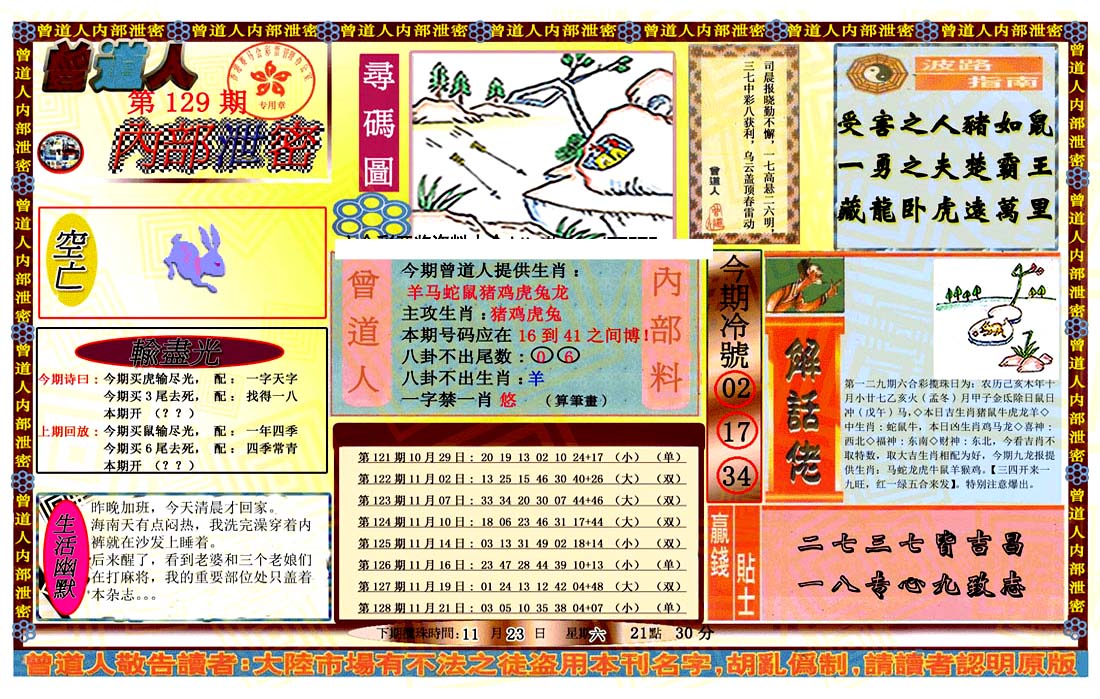 曾道人内部泄密 曾道人内部泄密 曾道人内部泄密 曾道人内部泄密 曾道人内部泄密 曾道人内部泄密 曾道人内部泄密
曾道人
第 129 期
内部泄密
专用章
空亡
輸盡光
今期诗曰：今期买虎输尽光， 配： 一字天字
今期买3尾去死， 配： 找得一八
本期开 （？？）
上期回放：今期买鼠输尽光， 配： 一年四季
今期买6尾去死， 配： 四季常青
本期开 （？？）
生活幽默
昨晚加班，今天清晨才回家。
海南天有点闷热，我洗完澡穿着内
裤就在沙发上睡着。
后来醒了，看到老婆和三个老娘们
在打麻将，我的重要部位处只盖着
本杂志。。。
尋碼圖
曾道人
内部料
今期曾道人提供生肖：
羊马蛇鼠猪鸡虎兔龙
主攻生肖：猪鸡虎兔
本期号码应在 16 到 41 之间博！
八卦不出尾数：0 6
八卦不出生肖：羊
一字禁一肖 悠 （算筆畫）
第121期10月29日：20 19 13 02 10 24+17 （小） （单）
第122期11月02日：13 25 15 46 30 40+26 （大） （双）
第123期11月07日：33 34 20 30 07 44+46 （大） （双）
第124期11月10日：18 06 23 46 31 17+44 （大） （双）
第125期11月14日：03 13 31 49 02 18+14 （小） （双）
第126期11月16日：23 47 28 44 39 10+13 （小） （单）
第127期11月19日：01 24 13 12 42 04+48 （大） （双）
第128期11月21日：03 05 10 35 38 04+07 （小） （单）
下期攪珠時間：11 月 23 日 星期六 21點 30 分
司晨报晓勤不懈，一七高悬二六明，
三七中彩八获利，乌云盖顶春雷动
曾道人
波路指南
受害之人豬如鼠
一勇之夫楚霸王
藏龍卧虎遠萬里
今期冷號
02
17
34
解話佬
第一二九期六合彩攪珠日为：农历己亥木年十
月小廿七乙亥火（孟冬）月甲子金氐除日鼠日
冲（戊午）马，◇本日吉生肖猪鼠牛虎龙羊◇
中生肖：蛇鼠牛，本日凶生肖鸡马龙◇喜神：
西北◇福神：东南◇财神：东北，今看吉肖不
取特数，取大吉生肖相配为好，今期九龙报提
供生肖：马蛇龙虎牛鼠羊猴鸡。【三四开来一
九旺，红一绿五合来发】。特别注意爆出。
贏錢
貼士
二七三七寶吉昌
一八专心九致志
曾道人敬告讀者：大陸市場有不法之徒盗用本刊名字，胡亂僞制，請讀者認明原版